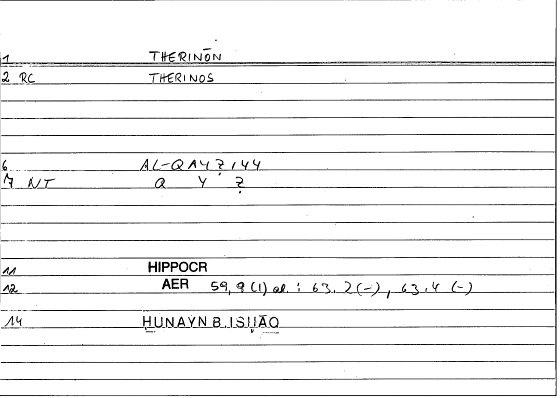 1 THERINŌN
2 RC THERINOS
6 AL-QAYẒIYY
7 NT Q Y Ẓ
11 HIPPOCR
12 AER 59,9 (1) al. : 63.2 (-), 63.4 (-)
14 ḤUNAYN B. ISḤĀQ